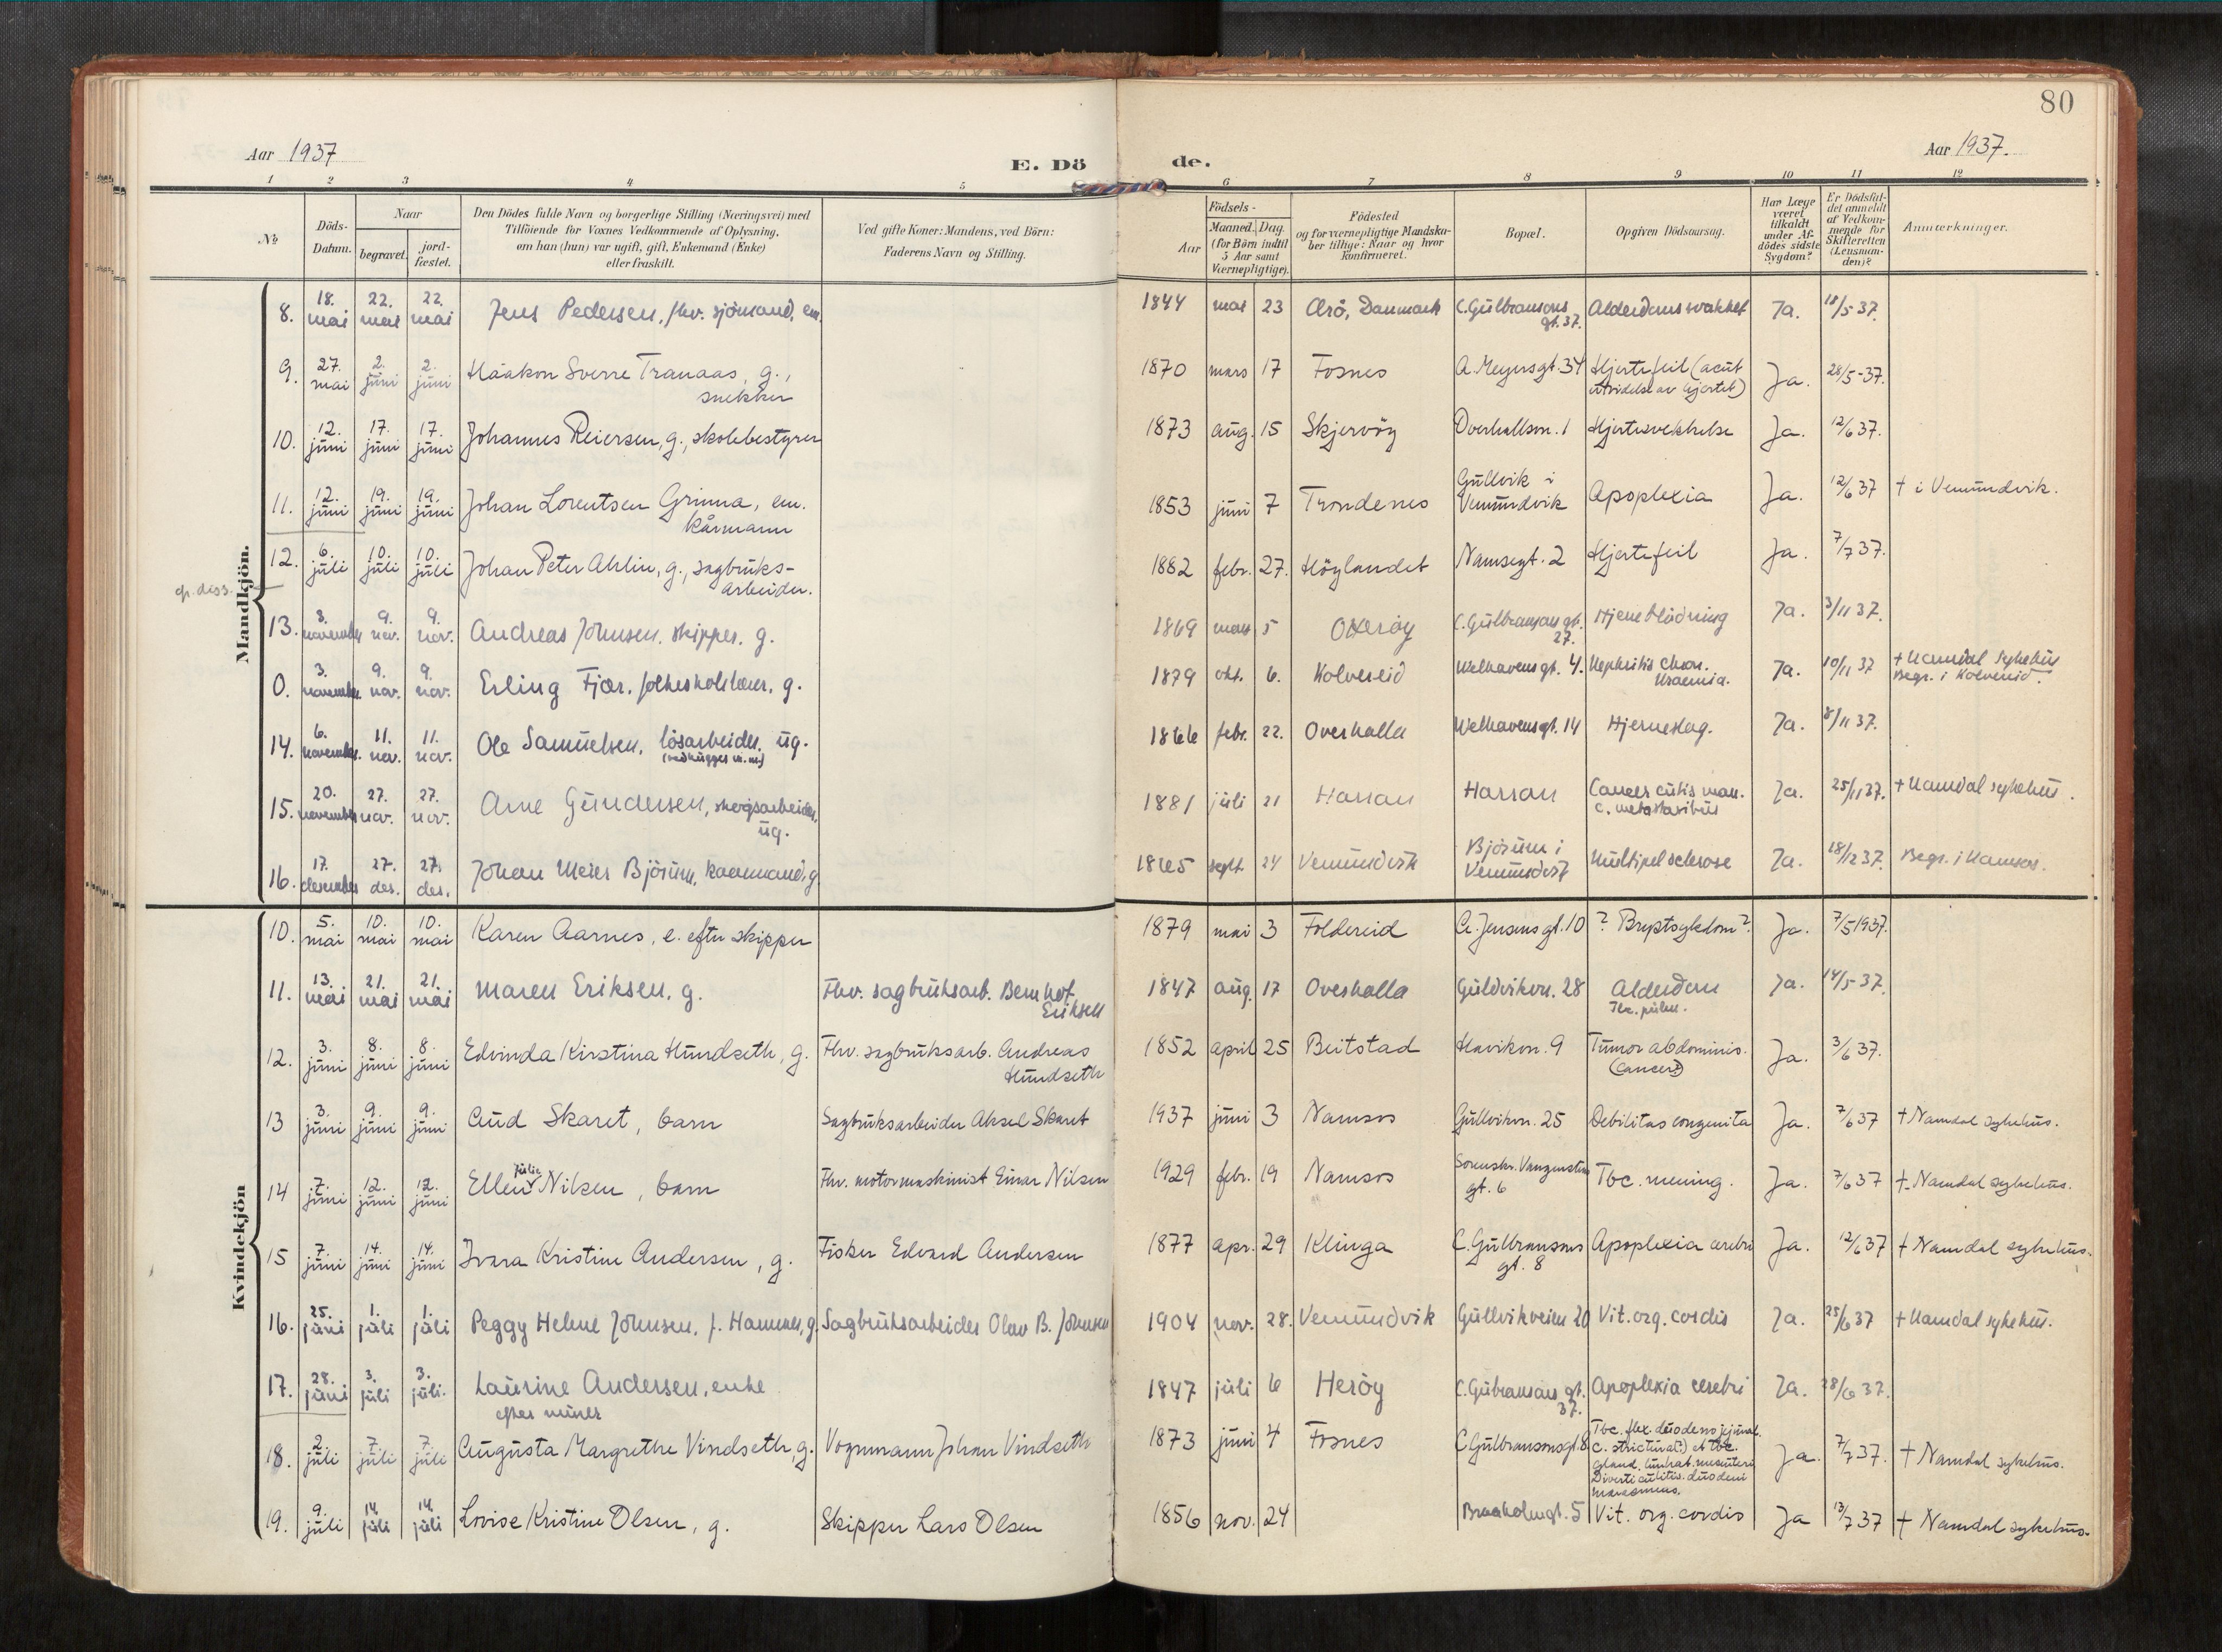 80
Aar 1937
E. Dö de.
Aar 1937.
1 2 3 4 5 6 7 8 9 10 11 12
№
Döds-
Datum.
Naar
begravet.
jord-
fæstet.
Den Dödes fulde Navn og borgerlige Stilling (Næringsvei) med
Tilföiende for Voxnes Vedkommende af Oplysning,
om han (hun) var ugift, gift, Enkemand (Enke)
eller fraskilt.
Ved gifte Koner: Mandens, ved Börn:
Faderens Navn og Stilling.
Födsels-
Aar
Maaned. Dag.
(for Börn indtil
5 Aar samt
Værnepligtige).
Födested
og for værnepligtige Mandska-
ber tillige: Naar og hvor
konfirmeret.
Bopæl.
Opgiven Dödsaarsag.
Har Læge
været
tilkaldt
under Af-
dödes sidste
Sygdom?
Er Dödsfal-
det anmeldt
af Vedkom-
mende for
Skifteretten
(Lensman-
den)?
Anmærkninger.
Mandkjön.
8. 18. mai 22. mai 22. mai Jens Pedersen, fhv. sjömand, em. 1844 mai 23 Ærö, Danmark C. Gülbransons gt. 37. Alderdomssvakhet Ja. 18/5 37.
9. 27. mai 2. jüni 2. jüni Haakon Sverre Tranaas, g., snekker 1870 mars 17 Fosnes A. Meyersgt. 34 Hjertefeil (acüt utvidelse av hjertet) Ja. 28/5-37.
10. 12. jüni 17. jüni 17. jüni Johannes Reiersen, g., skolebestyrer 1873 aüg. 15 Skjervöy Overhallsvn. 1 Hjertesvekkelse Ja. 12/6 37.
11. 12. jüni 19. jüni 19. jüni Johan Lorentsen Grinna, em. kårmann 1853 jüni 7 Trondenes Güllvik i Vemündvik Apoplexia Ja. 12/6 37 † i Vemündvik.
12. 6. jüli 10. jüli 10. jüli Johan Peter Ahlin, g., sagbrüks- arbeider. 1882 febr. 27. Höylandet Namsegt. 2 Hjertefeil Ja. 7/7 37.
13. 3. november 9. nov. 9. nov. Andreas Johnsen, skipper, g. 1869 mars 5 Otteröy C. Gülbransons gt. 27. Hjerneblödning Ja. 3/11 37.
0. 3. november 9. nov. 9. nov. Erling Fjær, folkeskolelærer, g. 1879 okt. 6. Kolvereid Welhavens gt. 4. Nephritis chron. Uraemia. Ja. 10/11 37 † Namdal sykehüs Begr. i Kolvereid.
14. 6. november 11. nov. 11. nov. Ole Samüelsen, lösarbeider, üg. (vedhügger m.m.) 1866 febr. 22. Overhalla Welhavensgt. 14 Hjerneslag. Ja. 8/11 37.
15. 20. november 27. nov. 27. nov. Arne Gündersen, skogsarbeider, üg. 1881 jüli 21 Harran Harran Cancer cütis man. c. metastasibüs Ja. 25/11 37. † Namdal sykehüs.
16. 17. desember 27. des. 27. des. Johan Meier Björüm, kaarmand, g 1865 sept. 24 Vemündvik Björüm i Vemündvik Mültipel sclerose Ja. 18/12 37. Begr. i Namsos.
Kvindekjön
10. 5. mai 10. mai 10. mai Karen Aarnes, e. efter skipper 1879 mai 3 Foldereid A. Jensens gt. 10 ? Brystsykdom? Ja. 7/5 1937.
11. 13. mai 21. mai 21. mai Maren Eriksen, g. Fhv. sagbrüksarb. Bernhof Eriksen 1847 aüg. 17 Overhalla Güldvikvn. 28 Alderdom Tbc. pülm. Ja. 14/5-37.
12. 3. jüni 8. jüni 8. jüni Edvinda Kirstina Hündseth, g. Fhv. sagbrüksarb. Andreas Hündseth 1852 april 25 Beitstad Havikvn. 9 Tümor abdominis. (Cancer?) Ja. 3/6 37.
13 3. jüni 9. jüni 9. jüni Aüd Skaret, barn Sagbrüksarbeider Aksel Skaret 1937 jüni 3 Namsos Güllvikvn. 25 Debilitas congenita Ja. 7/6 37 † Namdal sykehüs.
14 7. jüni 12. jüni 12. jüni Ellen Jülie Nilsen, barn Fhv. motormaskinist Einar Nilsen 1929 febr. 19 Namsos gt. 6 Tbc. mening. Ja. 7/6 37 † Namdal sykehüs.
15 7. jüni 14. jüni 14. jüni Ivara Kristine Andersen, g. Fisker Edvard Andersen 1877 apr. 29 Klinga C. Gülbransons gt. 8 Apoplexia cerebri Ja. 12/6 37 † Namdal sykehüs.
16. 25. jüni 1. jüli 1. jüli Peggy Helene Johnsen, f. Hammer, g. Sagbrüksarbeider Olav B. Johnsen 1904 nov. 28. Vemündvik Güllvikveien 20 Vit. org. cordis Ja. 25/6 37 † Namdal sykehüs.
17. 28. jüni 3. jüli 3. jüli. Laürine Andersen, enke efter mürer 1847 jüli 6 Heröy C. Gülbransons gt. 37. Apoplexia cerebri Ja. 28/6 37.
18. 2. jüli 7. jüli 7. jüli Aügüsta Margrethe Vindseth, g. Vognmann Johan Vindseth 1873 jüni 4 Fosnes C. Gülbransonsgt. 8 Tbc. flex. düodeno jejünal. c. strictüra(?) et tbc. gland. mesenteri Diverticülitis düodeni marasmüs. Ja. 7/7 37. † Namdal sykehüs.
19. 9. jüli 14. jüli 14. jüli Lovise Kristine Olsen, g. Skipper Lars Olsen 1856 nov. 24 Braaholmgt. 5 Vit. org. cordis Ja 13/7 37 † Namdal sykehüs.